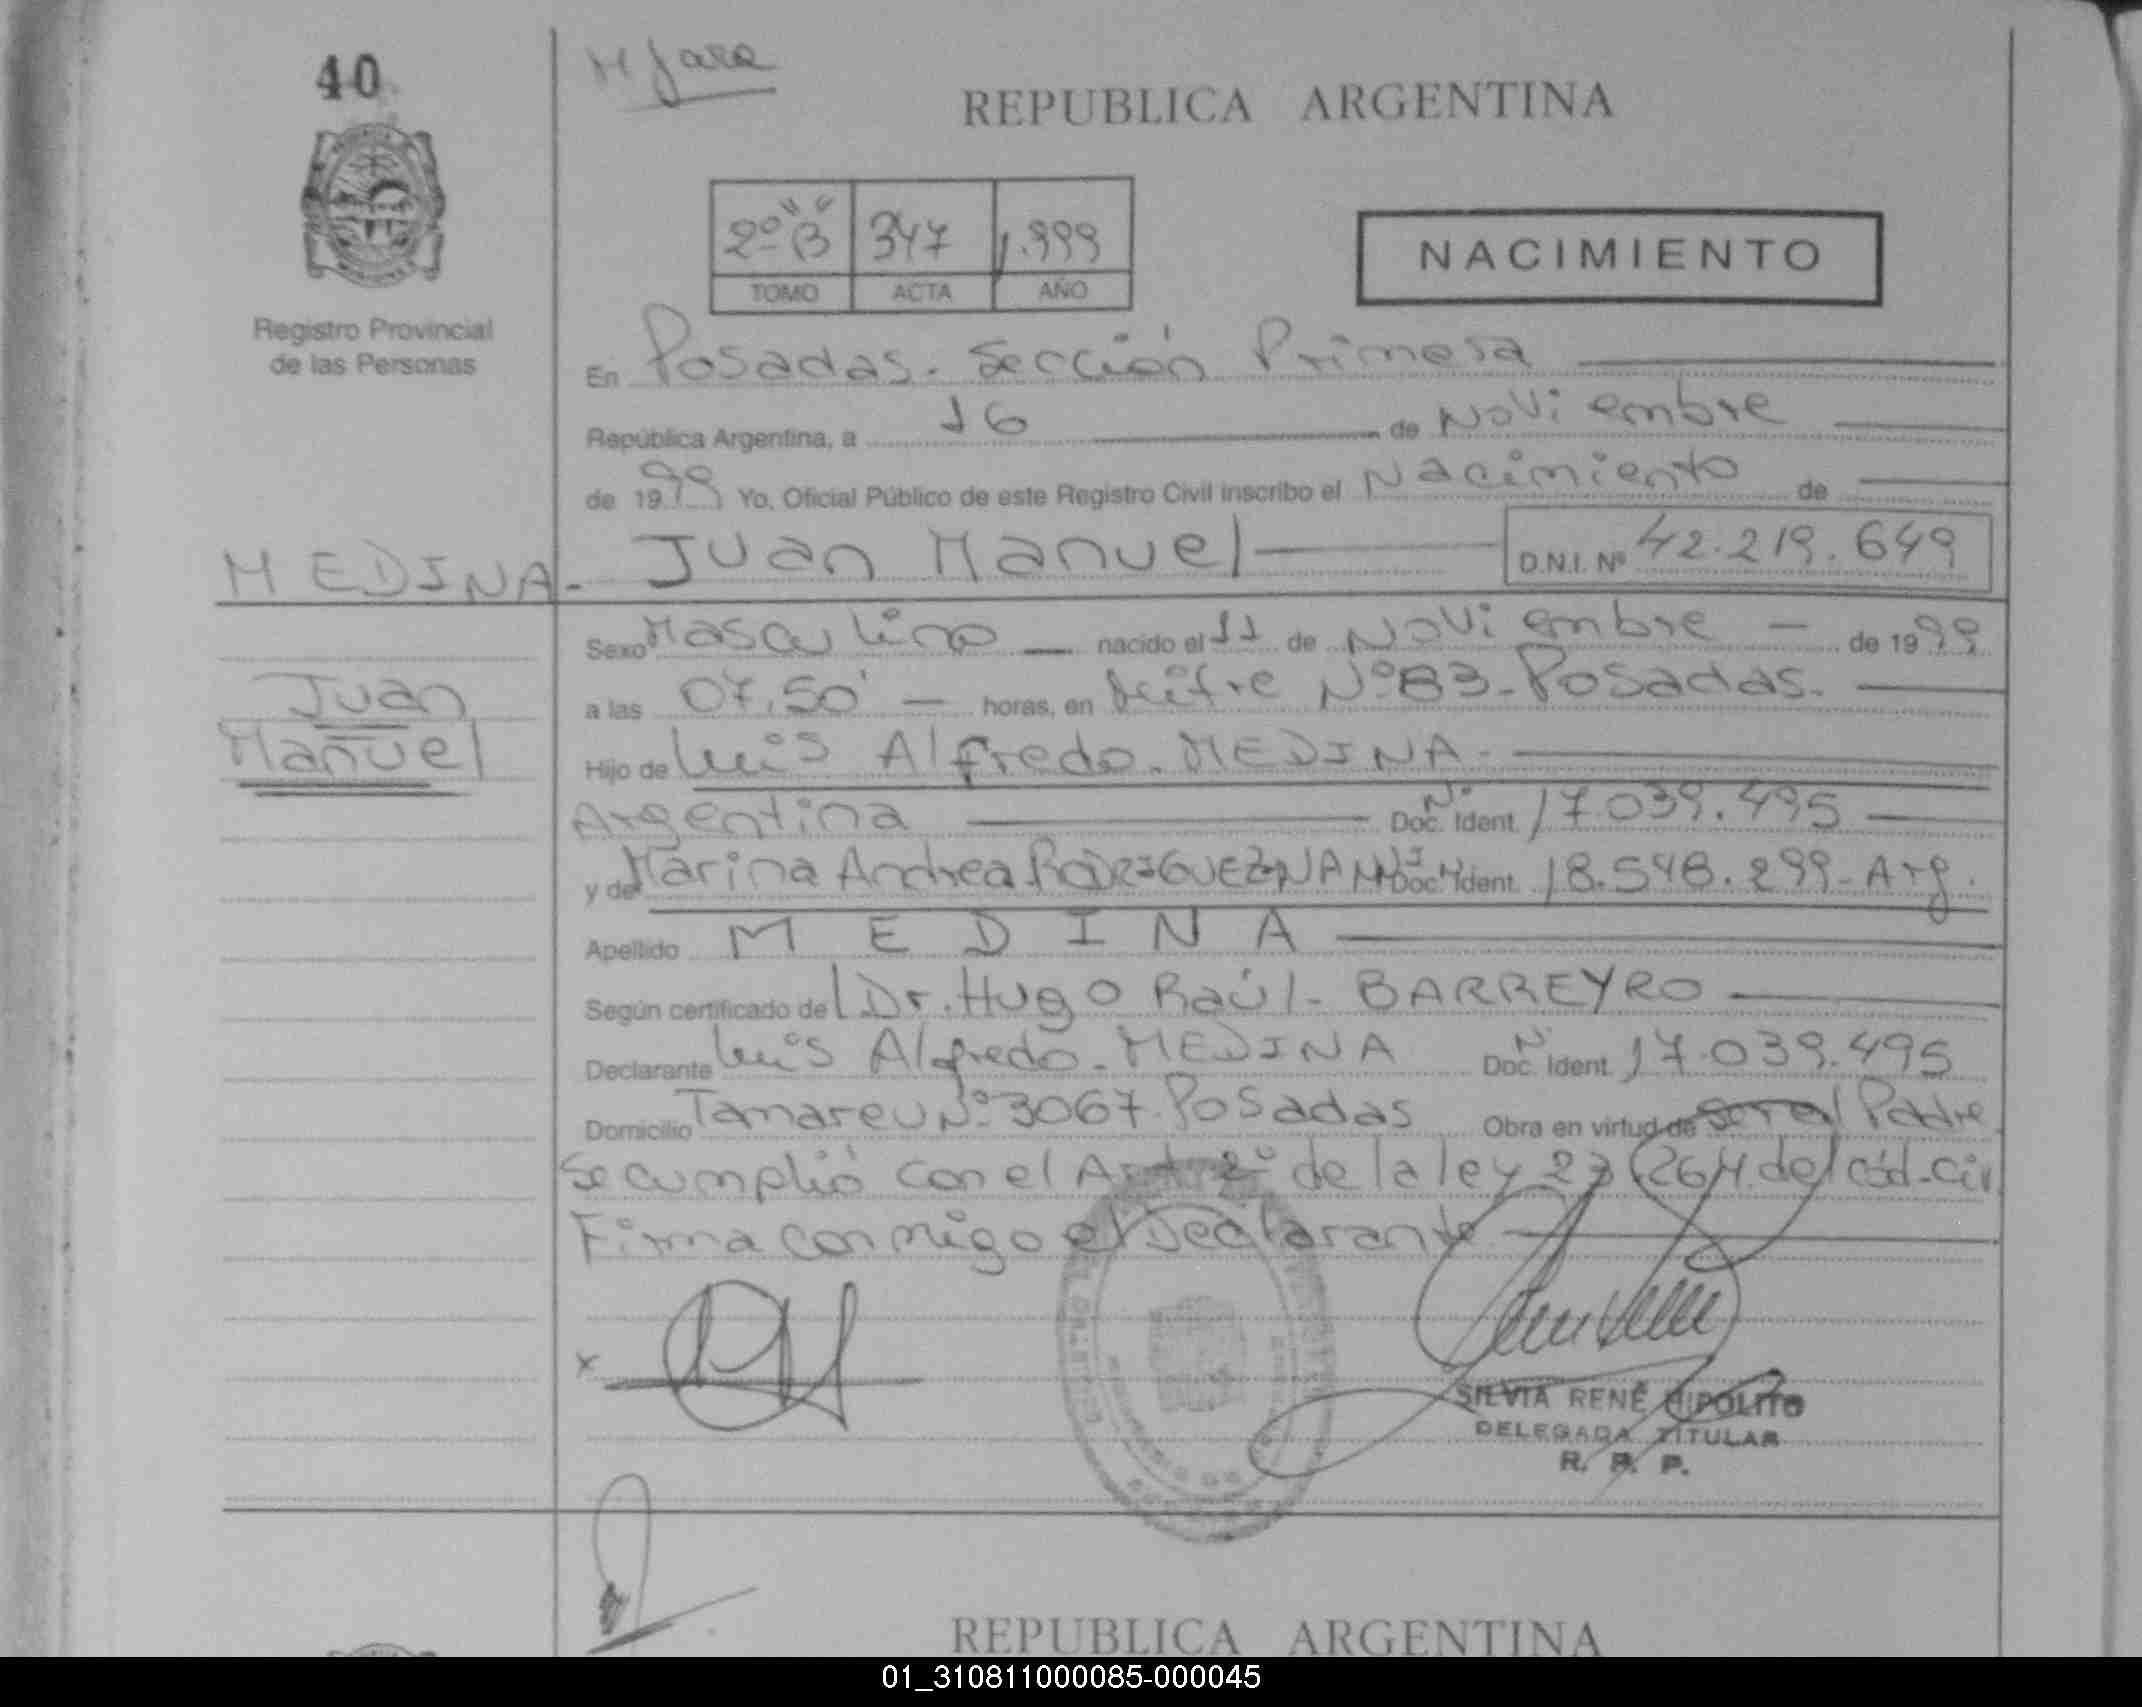 40
M Jara
REPUBLICA ARGENTINA
2º "B" 347 1.999
TOMO ACTA AÑO
NACIMIENTO
Registro Provincial
de las Personas
En Posadas. Sección Primera
República Argentina, a 16 de Noviembre
de 1999 Yo, Oficial Público de este Registro Civil inscribo el Nacimiento de
MEDINA - Juan Manuel D.N.I. Nº 42.219.649
Sexo Masculino nacido el 11 de Noviembre - de 1999
Juan
Manuel
a las 07,50' - horas, en Mitre Nº 83 - Posadas.
Hijo de Luis Alfredo. MEDINA -
Argentina Doc. Ident. Nº 17.039.495
y de Marina Andrea RODRIGUEZ Doc. Ident. 18.548.299 - Arg.
Apellido MEDINA
Según certificado de l Dr. Hugo Raúl - BARREYRO
Declarante Luis Alfredo. MEDINA Doc. Ident. Nº 17.039.495
Domicilio Tamareu Nº 3067. Posadas Obra en virtud de ser el Padre
Se cumplió con el Art 2º de la ley 23 264 del cód. Civ
Firma conmigo el Declarante
x
SILVIA RENÉ HIPOLITO
DELEGADA TITULAR
R. P. P.
REPUBLICA ARGENTINA
01_310811000085-000045